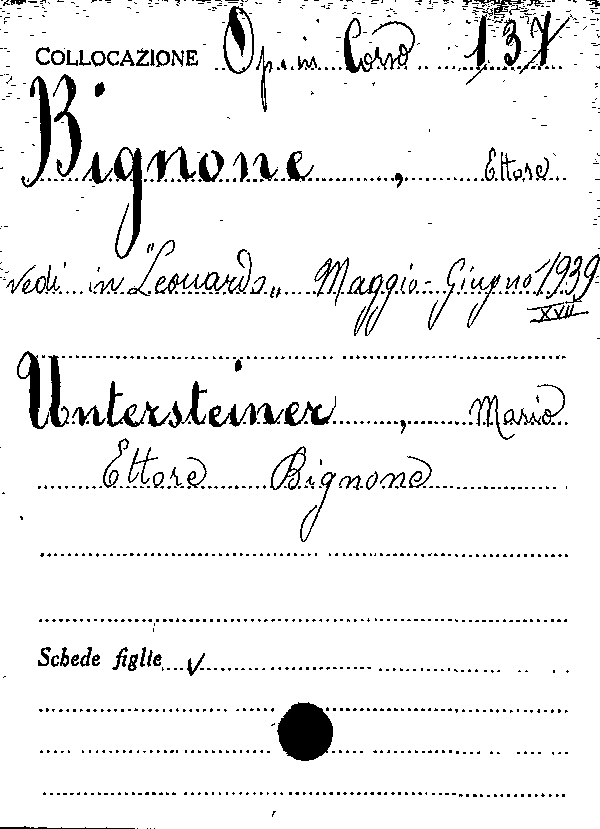 COLLOCAZIONE Op. in Corso 137
Bignone, Ettore
vedi in "Leonardo" Maggio-Giugno 1939
XVII
Untersteiner, Mario
Ettore Bignone
Schede figlie V